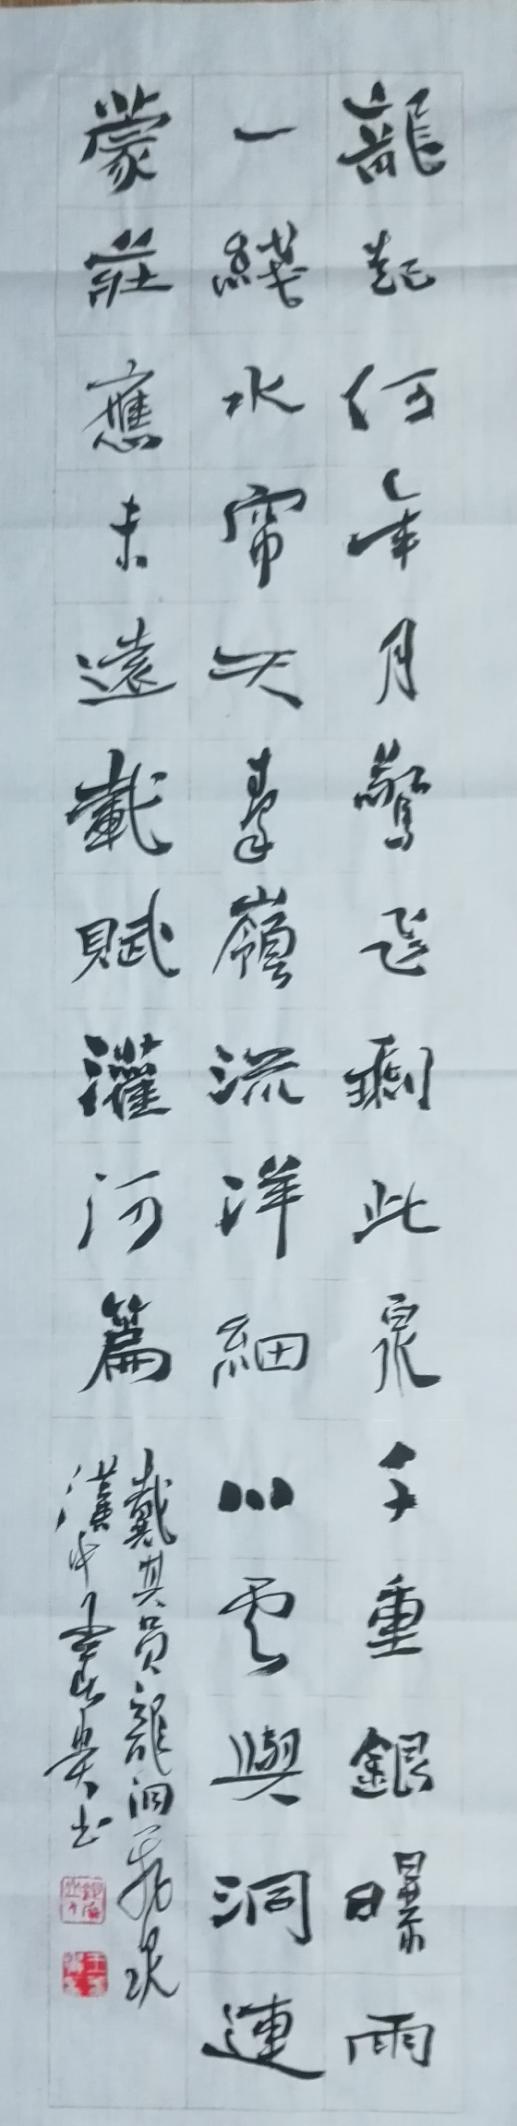 龍起何年月驚飛剩此泉千重銀曝雨
一綫水帘天峯嶺流洋細川雲與洞連
蒙莊應未遠載賦灌河篇
戴其員龍洞飛泉
漢中書